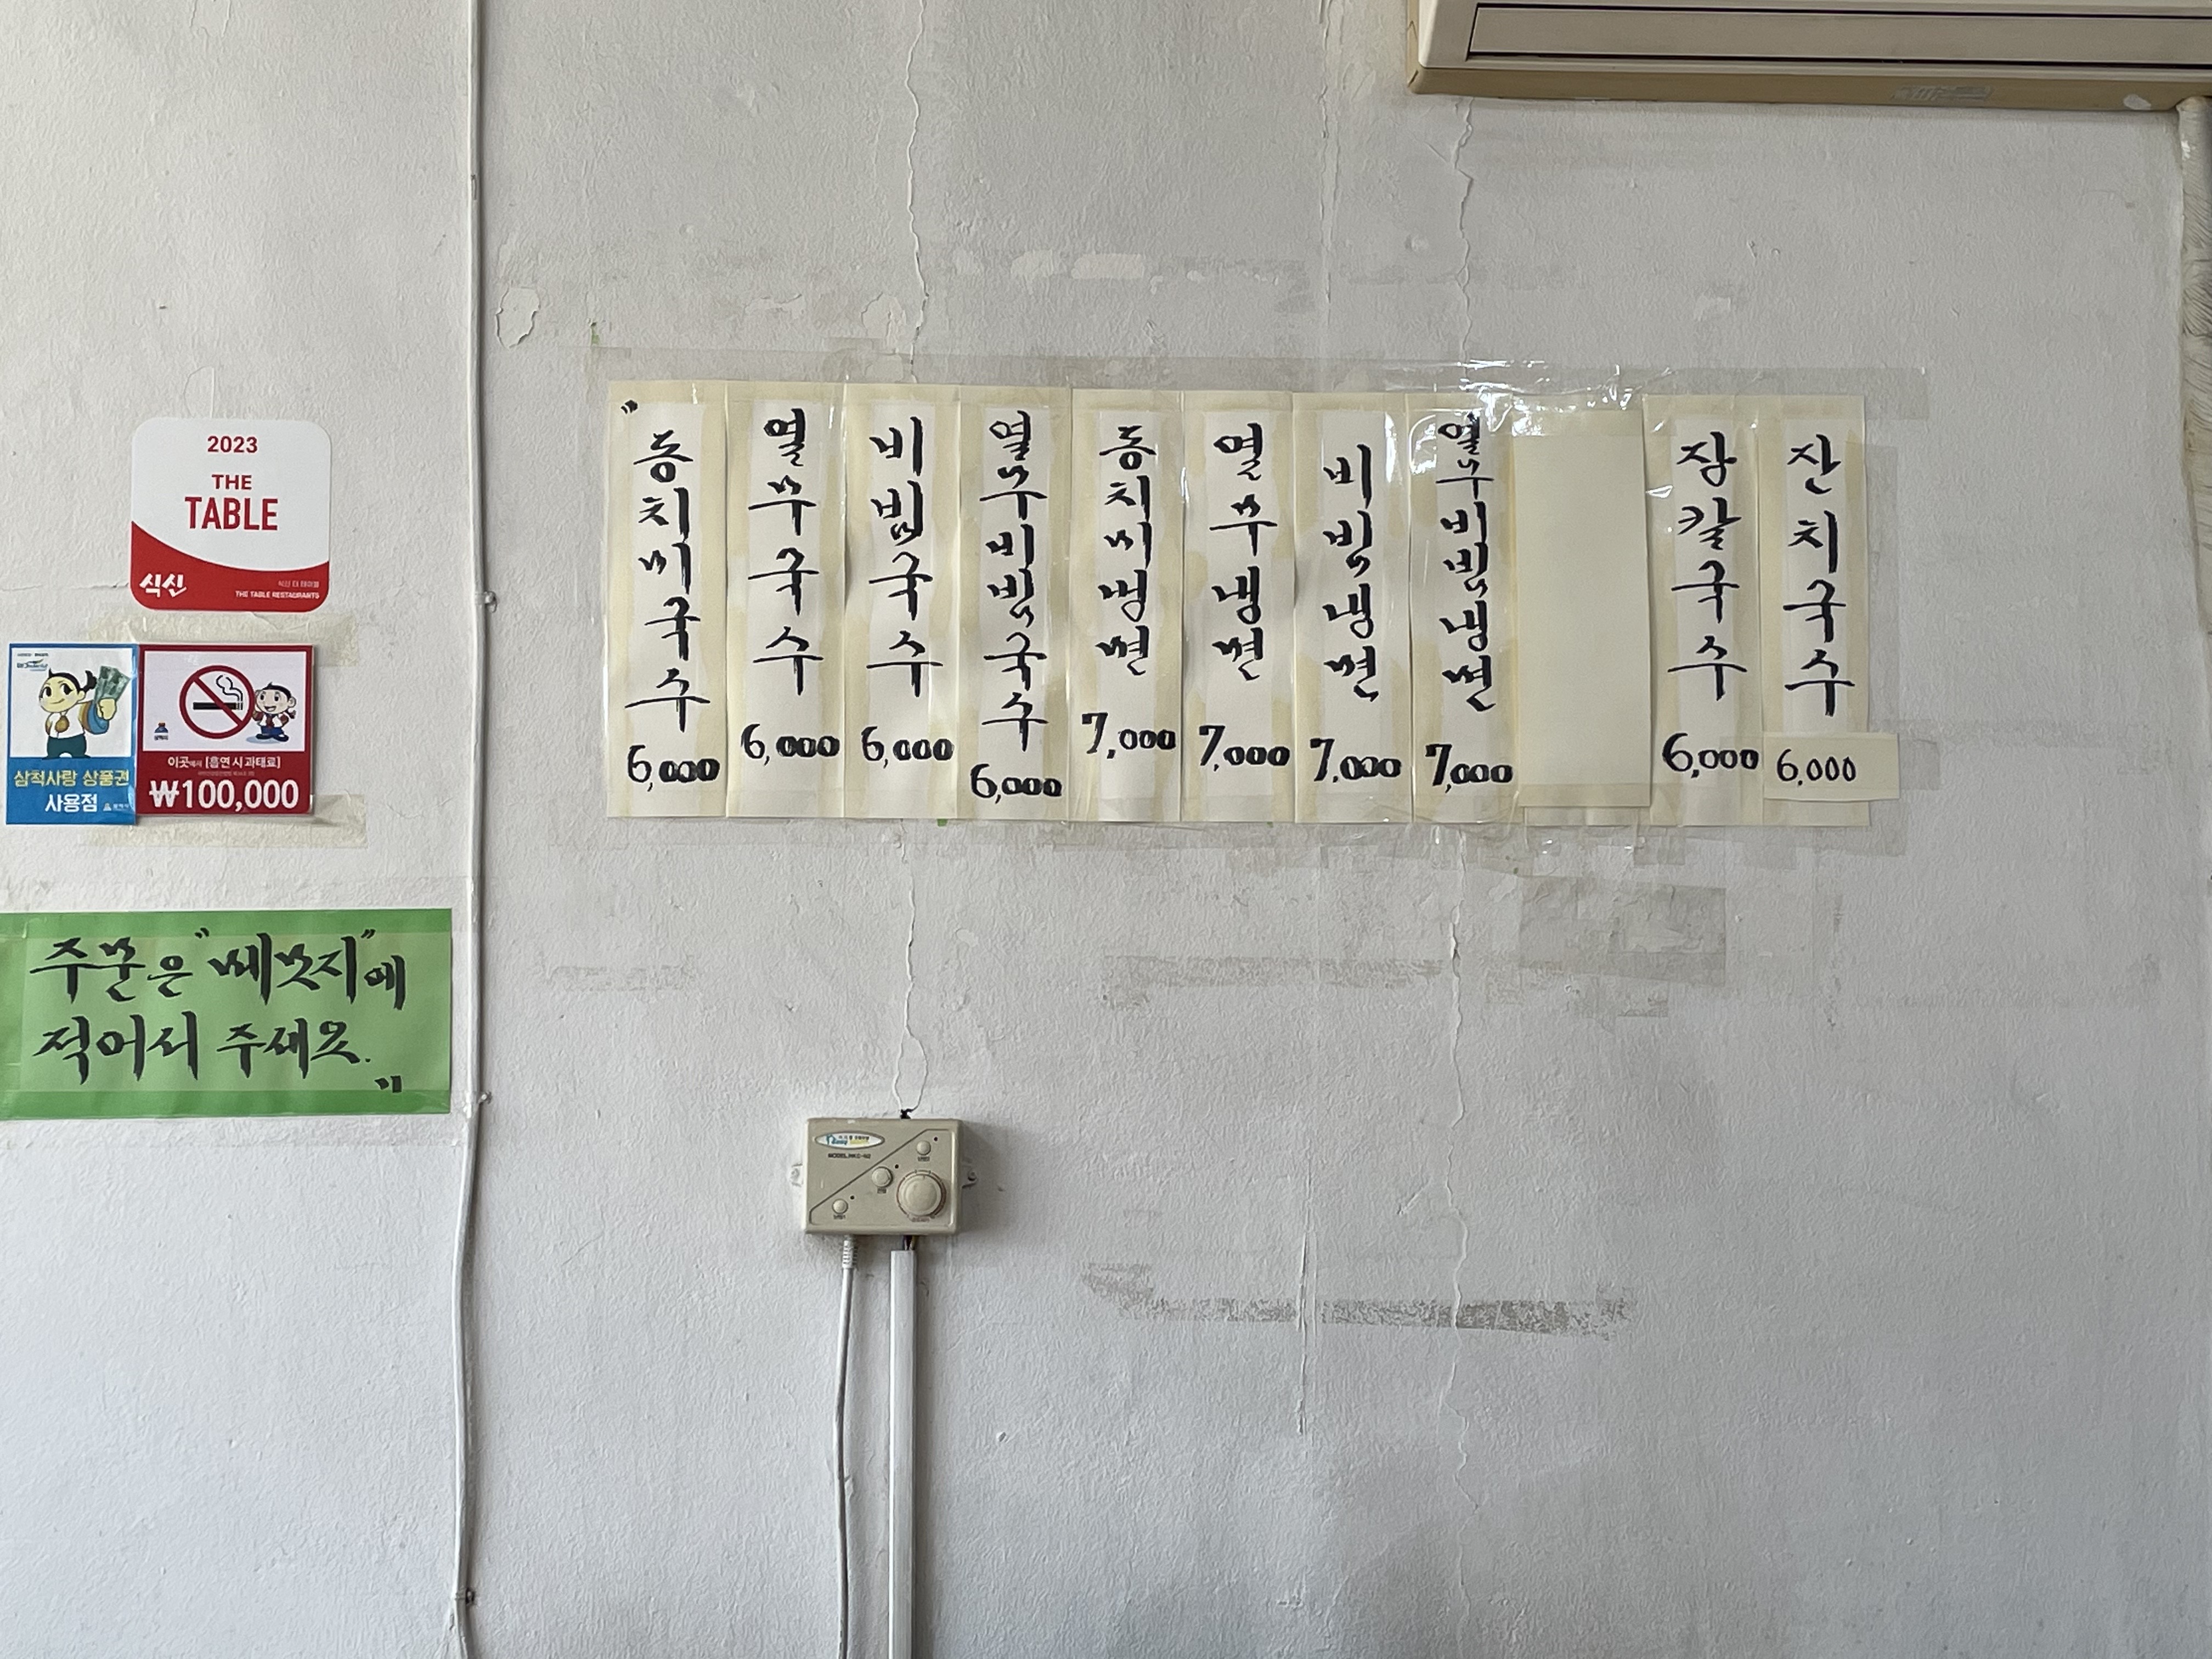 2023
THE
TABLE
식신
식신 더 테이블
THE TABLE RESTAURANTS
삼척사랑 상품권
사용점
이곳에서 [흡연 시 과태료]
₩100,000
주문은 "메뉴지"에
적어서 주세요.
"
"
동치미국수
6,000
열무국수
6,000
비빔국수
6,000
열무비빔국수
6,000
동치미냉면
7,000
열무냉면
7,000
비빔냉면
7,000
열무비빔냉면
7,000
장칼국수
6,000
잔치국수
6,000